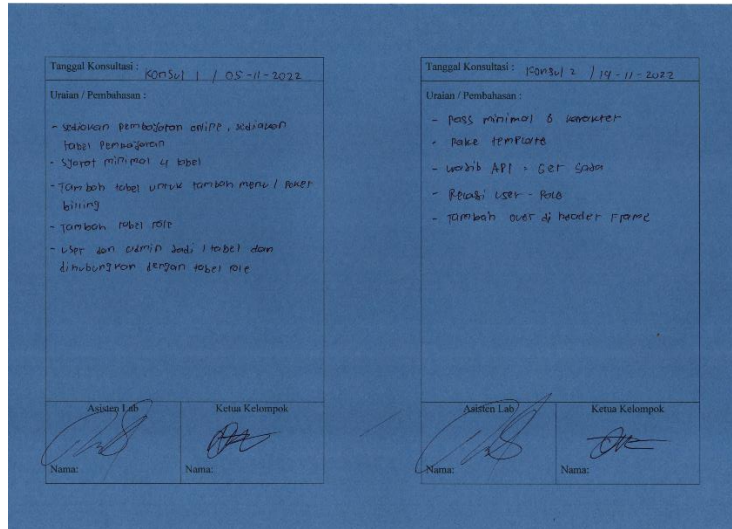 Tanggal Konsultasi : Konsul 1 / 05-11-2022
Uraian / Pembahasan :
- sediakan pembayaran online, sediakan
tabel pembayaran
- syarat minimal 4 tabel
- Tambah tabel untuk tambah menu / paket
billing
- Tambah tabel role
- User dan admin jadi 1 tabel dan
dihubungkan dengan tabel role
Asisten Lab
Ketua Kelompok
Nama:
Nama:
Tanggal Konsultasi : Konsul 2 / 19-11-2022
Uraian / Pembahasan :
- Pass minimal 8 karakter
- Pake template
- wajib API : Get
- Relasi User - Role
- Tambah di header Frame
Asisten Lab
Ketua Kelompok
Nama:
Nama: